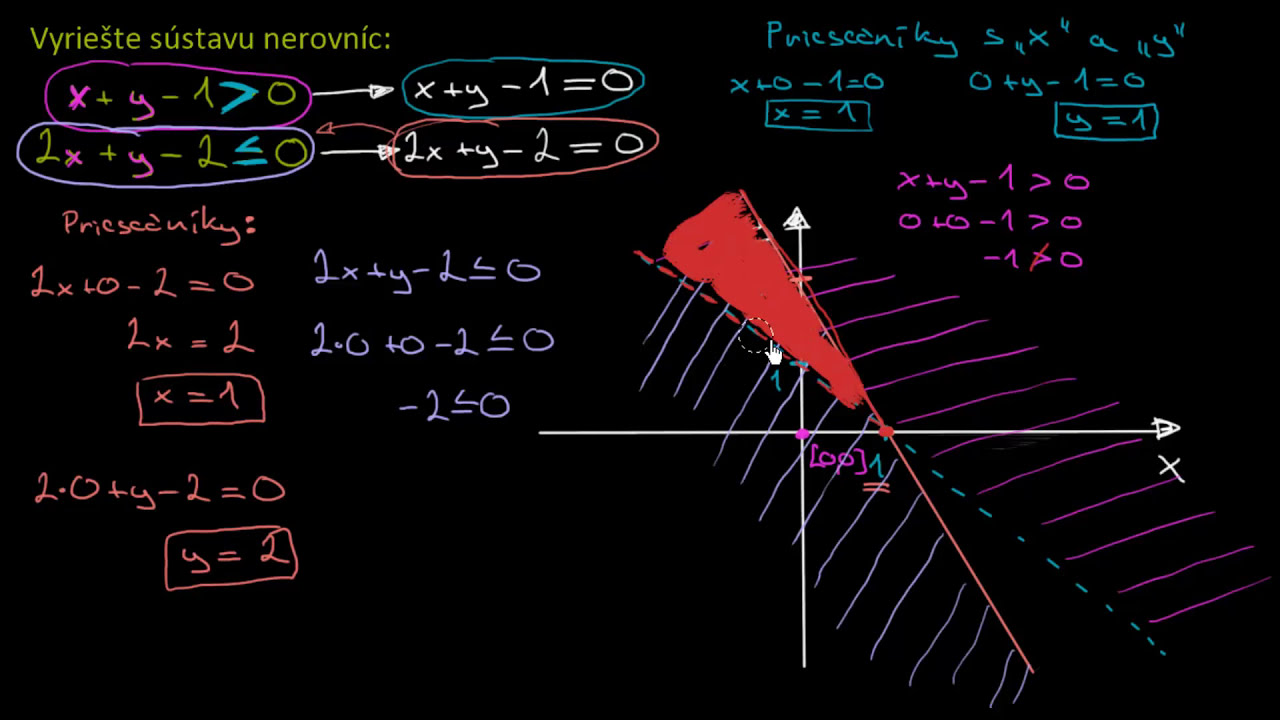 Vyriešte sústavu nerovníc:
x + y - 1 > 0
x + y - 1 = 0
2x + y - 2 ≤ 0
2x + y - 2 = 0
Priesečníky:
2x + 0 - 2 = 0
2x = 2
x = 1
2·0 + y - 2 = 0
y = 2
2x + y - 2 ≤ 0
2·0 + 0 - 2 ≤ 0
-2 ≤ 0
Priesečníky s „x" a „y"
x + 0 - 1 = 0
x = 1
0 + y - 1 = 0
y = 1
x + y - 1 > 0
0 + 0 - 1 > 0
-1 ≯ 0
1
[00]
1
x